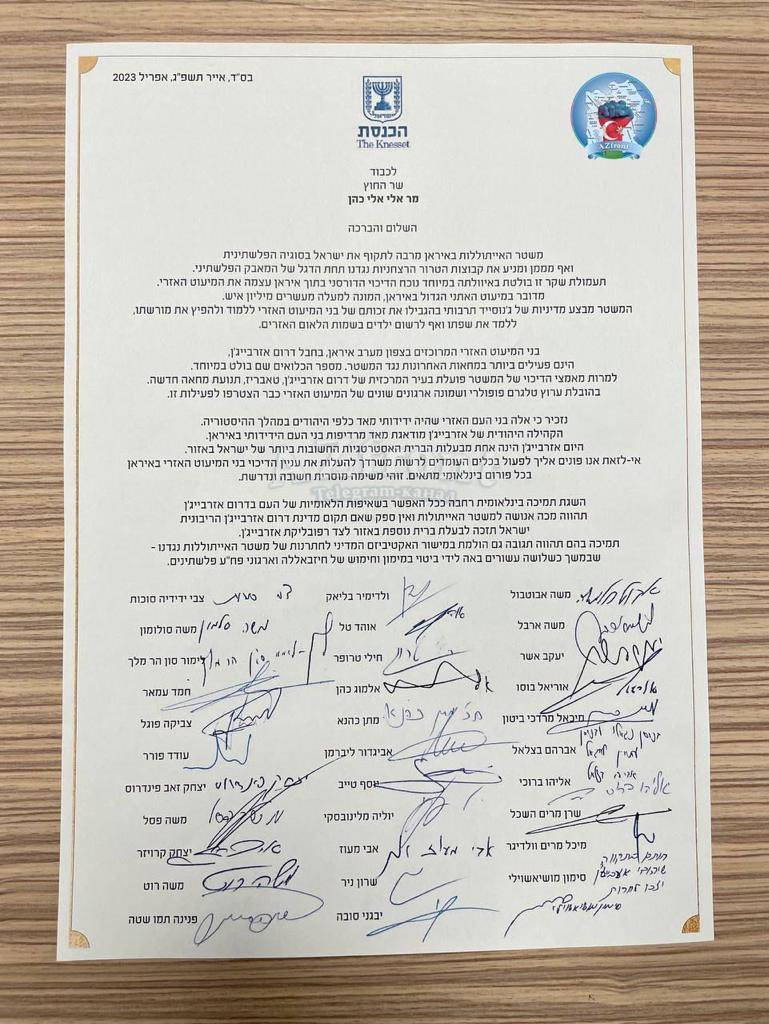 בס"ד, אייר תשפ"ג, אפריל 2023
הכנסת
The Knesset
AZfront
לכבוד
שר החוץ
מר אלי אלי כהן
השלום והברכה
משטר האייתוללות באיראן מרבה לתקוף את ישראל בסוגיה הפלשתינית
ואף מממן ומניע את קבוצות הטרור הרצחניות נגדנו תחת הדגל של המאבק הפלשתיני.
תעמולת שקר זו בולטת באיוולתה במיוחד נוכח הדיכוי הדורסני בתוך איראן עצמה את המיעוט האזרי.
מדובר במיעוט האתני הגדול באיראן, המונה למעלה מעשרים מיליון איש.
המשטר מבצע מדיניות של ג'נוסייד תרבותי בהגבילו את זכותם של בני המיעוט האזרי ללמוד ולהפיץ את מורשתו,
ללמד את שפתו ואף לרשום ילדים בשמות הלאום האזרים.
בני המיעוט האזרי המרוכזים בצפון מערב איראן, בחבל דרום אזרבייג'ן,
הינם פעילים ביותר במחאות האחרונות נגד המשטר. מספר הכלואים שם בולט במיוחד.
למרות מאמצי הדיכוי של המשטר פועלת בעיר המרכזית של דרום אזרבייג'ן, טאבריז, תנועת מחאה חדשה.
בהובלת ערוץ טלגרם פופולרי ושמונה ארגונים שונים של המיעוט האזרי כבר הצטרפו לפעילות זו.
נזכיר כי אלה בני העם האזרי שהיה ידידותי מאד כלפי היהודים במהלך ההיסטוריה.
הקהילה היהודית של אזרבייג'ן מודאגת מאד מרדיפות בני העם הידידותי באיראן.
היום אזרבייג'ן הינה אחת מבעלות הברית האסטרטגיות החשובות ביותר של ישראל באזור.
אי-לזאת אנו פונים אליך לפעול בכלים העומדים לרשות משרדך להעלות את עניין הדיכוי בני המיעוט האזרי באיראן
בכל פורום בינלאומי מתאים. זוהי משימה מוסרית חשובה ונדרשת.
Telegram-канал
השגת תמיכה בינלאומית רחבה ככל האפשר בשאיפות הלאומיות של העם בדרום אזרבייג'ן
תהווה מכה אנושה למשטר האייתולות ואין ספק שאם תקום מדינת דרום אזרבייג'ן הריבונית
ישראל תזכה לבעלת ברית נוספת באזור לצד רפובליקת אזרבייג'ן.
תמיכה בהם תהווה תגובה גם הולמת במישור האקטיביזם המדיני לחתרנות של משטר האייתוללות נגדנו -
שבמשך כשלושה עשורים באה לידי ביטוי במימון וחימוש של חיזבאללה וארגוני פח"ע פלשתינים.
משה אבוטבול ולדימיר בליאק צבי ידידיה סוכות
משה ארבל אוהד טל משה סולומון
יעקב אשר חילי טרופר לימור סון הר מלך
אוריאל בוסו אלמוג כהן חמד עמאר
מיכאל מרדכי ביטון מתן כהנא צביקה פוגל
אברהם בצלאל אביגדור ליברמן עודד פורר
אליהו ברוכי יוסף טייב יצחק זאב פינדרוס
שרן מרים השכל יוליה מלינובסקי משה פסל
מיכל מרים וולדיגר אבי מעוז יצחק קרויזר
סימון מושיאשוילי שרון ניר משה רוט
יבגני סובה פנינה תמו שטה